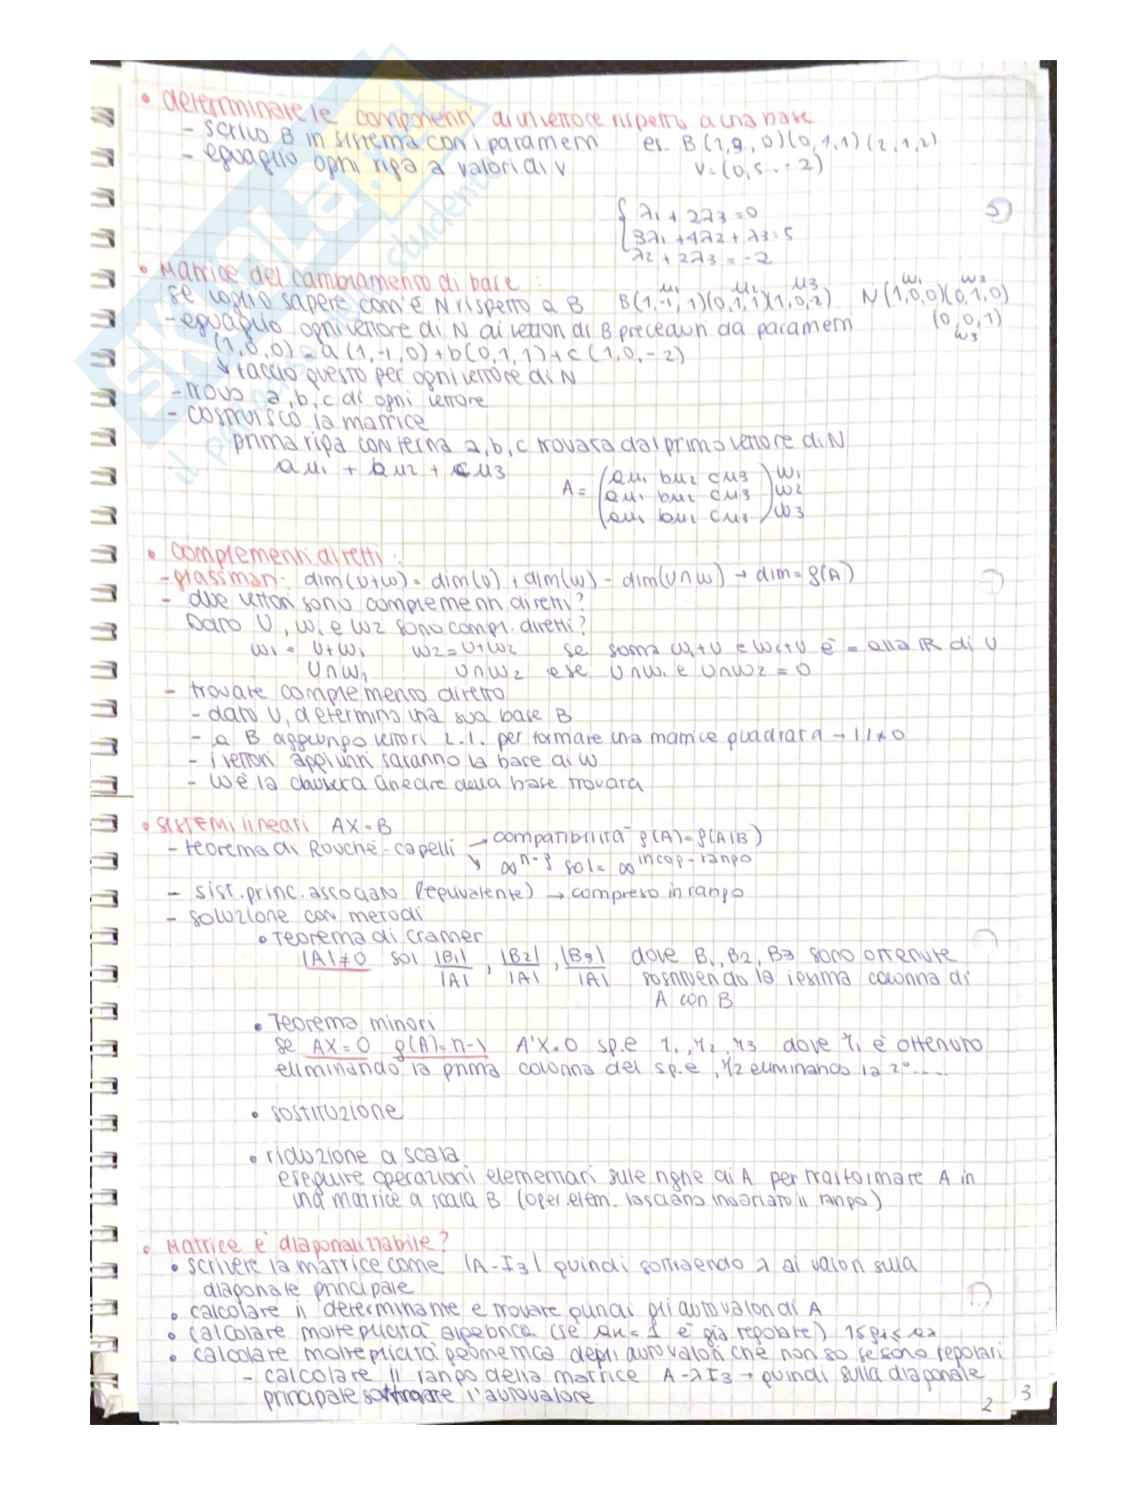 • determinare le componenti di un vettore rispetto a una base
- scrivo B in sistema con i parametri es. B (1,9,0)(0,1,1)(2,1,2)
- eguaglio ogni riga a valori di v v=(0,5..-2)
λ1 + 2λ3 = 0
3λ1 + 4λ2 + λ3 = 5
λ2 + 2λ3 = -2
• Matrice del cambiamento di base:
se voglio sapere com'è N rispetto a B B(1,-1,1)(0,1,1)(1,0,-2) N(1,0,0)(0,1,0)
u1 u2 u3 w1 w2
- eguaglio ogni vettore di N ai vettori di B preceduti da parametri (0,0,1)
w3
(1,0,0) = a(1,-1,0) + b(0,1,1) + c(1,0,-2)
↳ faccio questo per ogni vettore di N
- trovo a,b,c di ogni vettore
- costruisco la matrice
prima riga con terna a,b,c trovata dal primo vettore di N
au1 + bu2 + cu3
A = (au1 bu2 cu3) w1
(au1 bu2 cu3) w2
(au1 bu2 cu3) w3
• complementi diretti:
- grassman: dim(U+W) = dim(U) + dim(W) - dim(U∩W) → dim = ρ(A)
- due vettori sono complementi diretti?
Dato U, W1 e W2 sono compl. diretti?
W1 = U+W1 W2 = U+W2 se somma W1+U e W2+U è = alla ℝ di U
U∩W1 U∩W2 e se U∩W1 e U∩W2 = 0
- trovare complemento diretto
- dato U, determino una sua base B
- a B aggiungo vettori L.I. per formare una matrice quadrata → | | ≠ 0
- i vettori aggiunti saranno la base di W
- W è la chiusura lineare della base trovata
• SISTEMI lineari AX = B
- teorema di Rouchè-Capelli → compatibilità ρ(A) = ρ(A|B)
↘ ∞ⁿ⁻ᵖ sol = ∞ incog-rango
- sist. princ. associato (equivalente) → compreso in rango
- soluzione con metodi
• Teorema di Cramer
|A| ≠ 0 sol |B1|/|A| , |B2|/|A| , |B3|/|A| dove B1, B2, B3 sono ottenute
sostituendo la iesima colonna di
A con B
• Teorema minori
se AX = 0 ρ(A) = n-1 A'X = 0 sp.e γ1, γ2, γ3 dove γ1 è ottenuto
eliminando la prima colonna del sp.e, γ2 eliminando la 2ª.....
• sostituzione
• riduzione a scala
eseguire operazioni elementari sulle righe di A per trasformare A in
una matrice a scala B (oper. elem. lasciano invariato il rango)
• Matrice è diagonalizzabile?
• scrivere la matrice come |A-I3| quindi sottraendo λ ai valori sulla
diagonale principale
• calcolare il determinante e trovare quindi gli autovalori di A
• calcolare molteplicità algebrica (se an = 1 è già regolare)
• calcolare molteplicità geometrica degli autovalori che non so se sono regolari
- calcolare il rango della matrice A-λI3 → quindi sulla diagonale
principale sottrarre l'autovalore
2 3